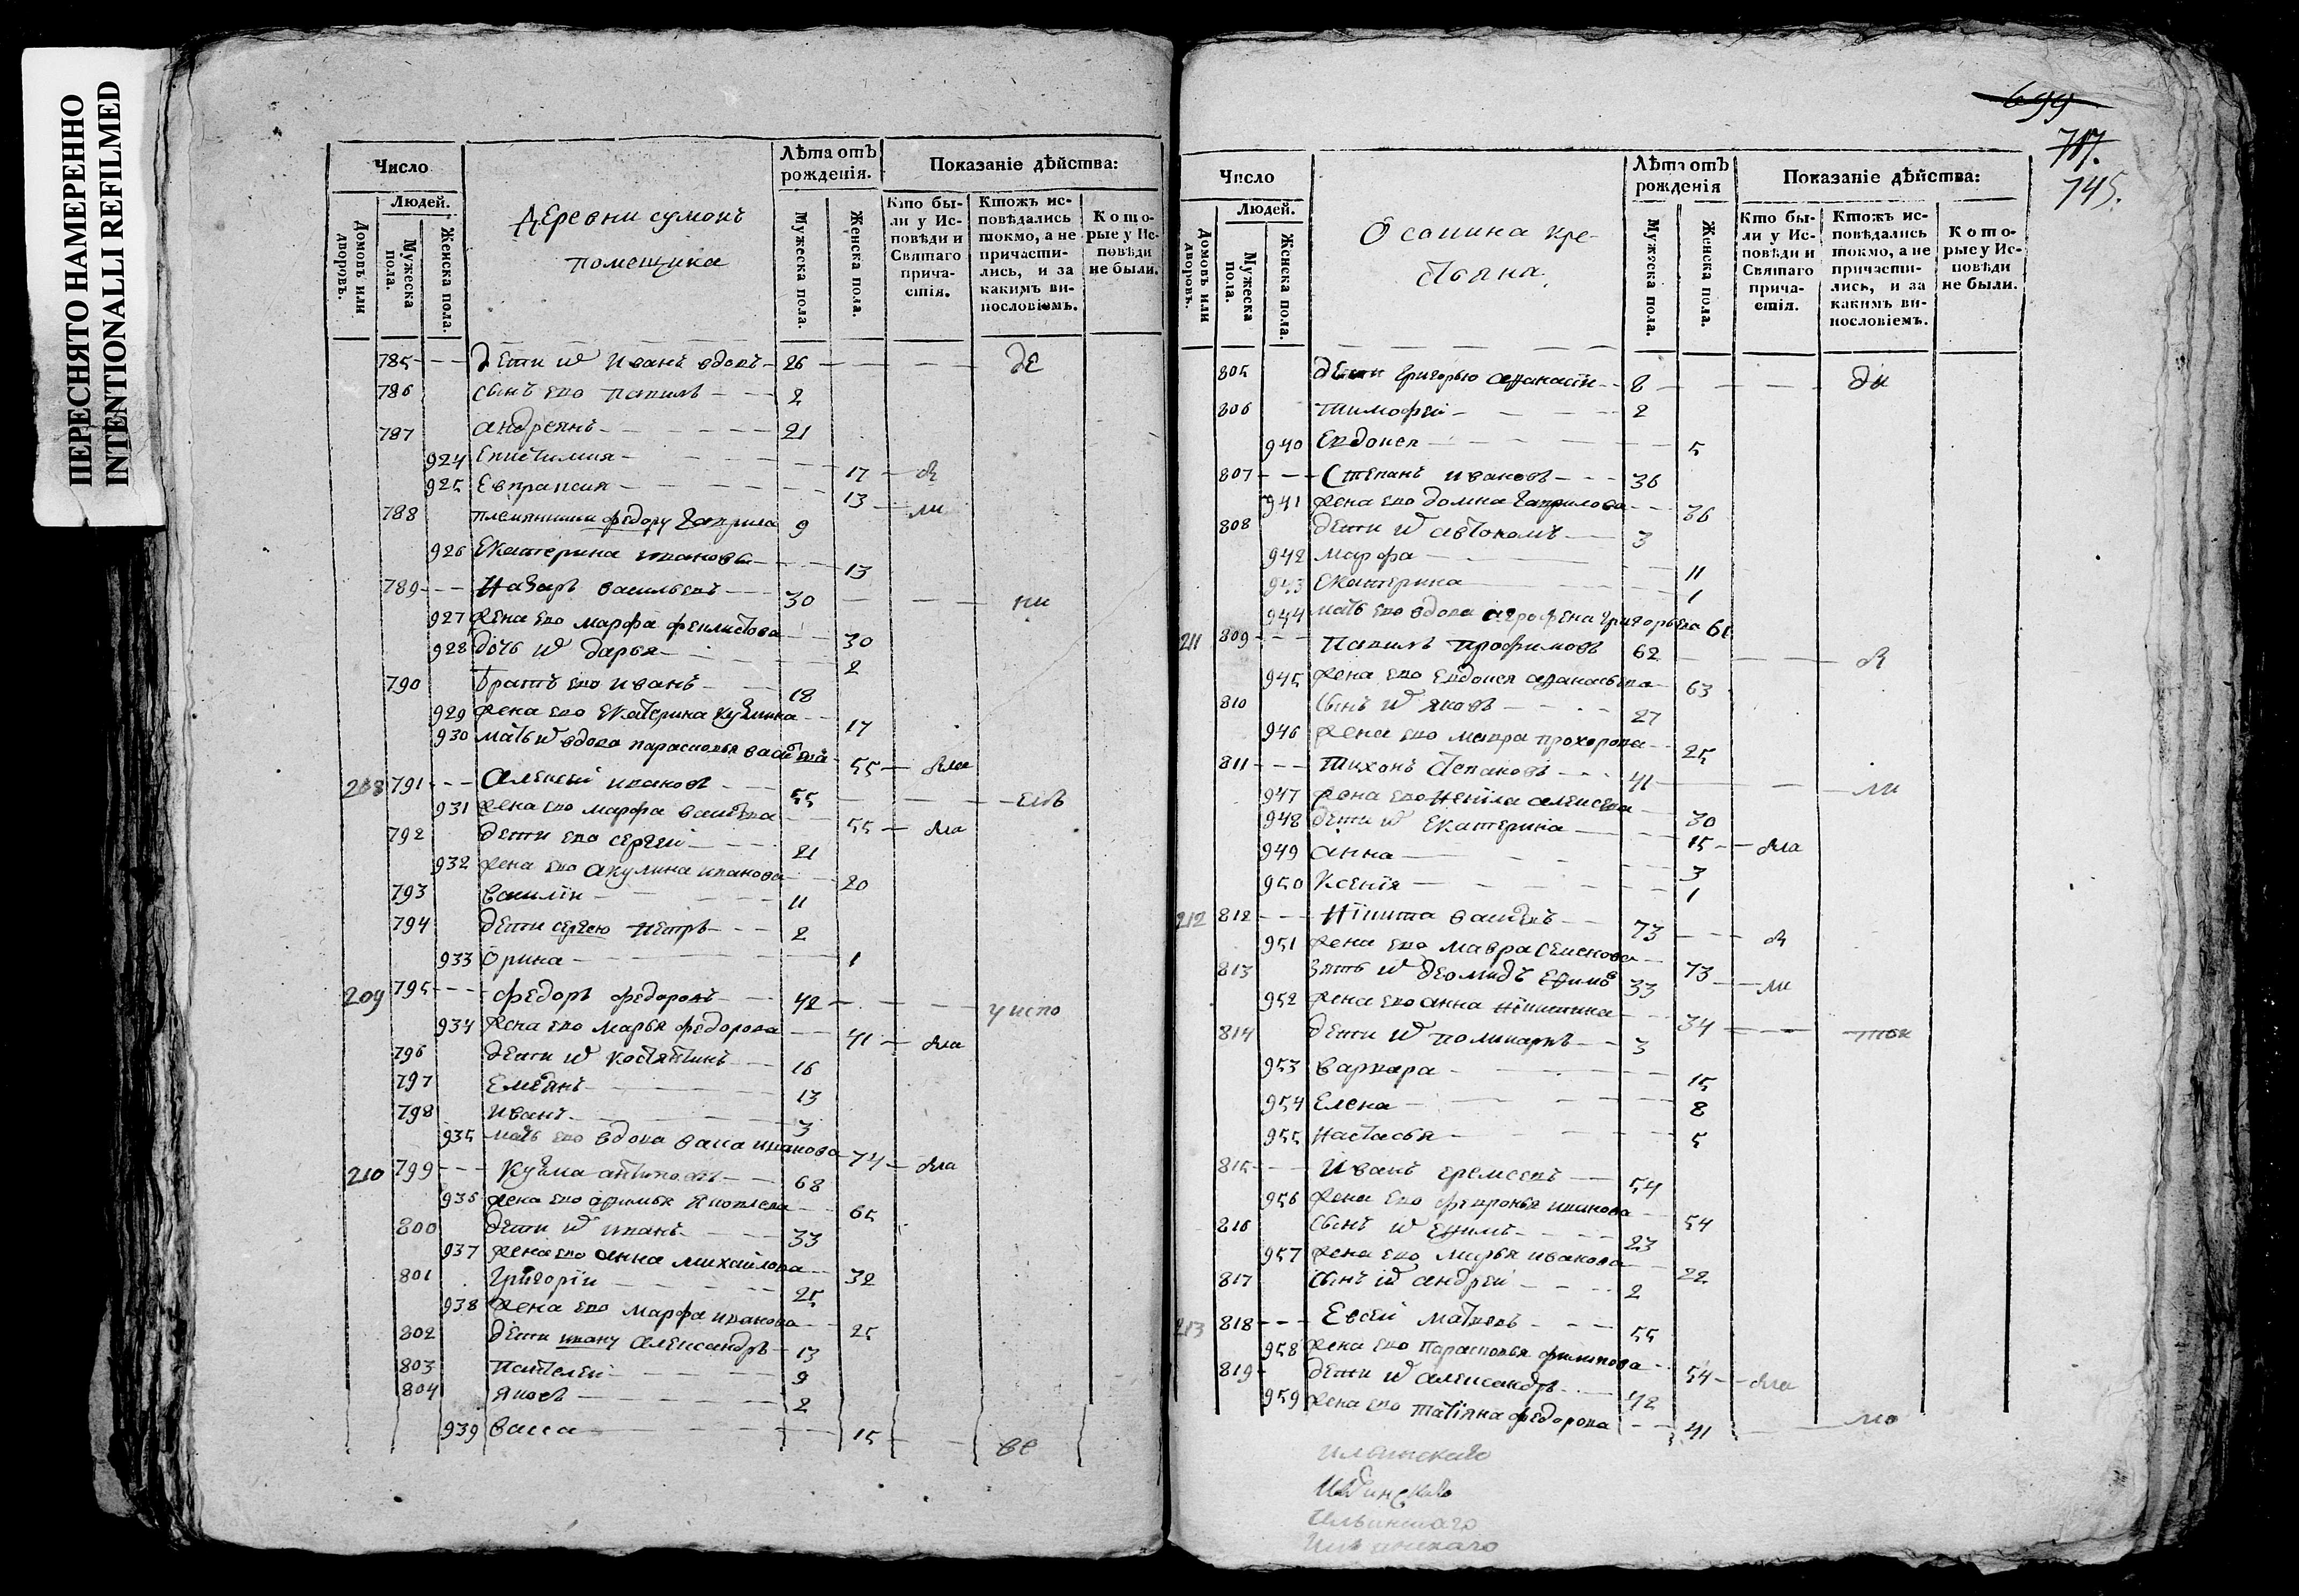 ПЕРЕСНЯТО НАМЕРЕННО
INTENTIONALLI REFILMED
Число
Людей.
Домовъ или дворовъ.
Мужеска пола.
Женска пола.
Деревни сумокъ
помещика
Лѣта отъ рожденія.
Мужеска пола.
Женска пола.
Показаніе дѣйства:
Кто бы-
ли у Ис-
повѣди и
Святаго
прича-
стія.
Ктожъ ис-
повѣдались
токмо, а не
причасти-
лись, и за
какимъ ви-
нословіемъ.
Кото-
рые у Ис-
повѣди
не были.
785 дети ѿ Иванъ вдовъ 26 де
786 сынъ ево павилъ 2
787 андреянъ 21
924 Епистимия 17
925 Евпраксия 13 ли
788 племянники федору Гаврила 9
926 Екатерина иванова 13
789 Назаръ васильевъ 30 ни
927 жена ево марфа феклистова 30
928 дочь ѿ дарья 2
790 братъ ево иванъ 18
929 жена ево Екатерина кузмина 17
930 мать ѿ вдова парасковья 55
208 791 Алексей ивановъ 55
931 жена ево марфа 55
792 дети ево сергей 21
932 жена ево акулина иванова 20
793 василий 11
794 дети сергею петръ 2
933 орина 1
209 795 федоръ федоровъ 42 у испо
934 жена ево марья федорова 41
796 дети ѿ костянтинъ 16
797 Емелянъ 13
798 иванъ 3
935 мать ево вдова васа иванова 74
210 799 Кузма антиповъ 68
936 жена ево афимья яковлева 65
800 дети ѿ иванъ 33
937 жена ево анна михайлова 32
801 Григорий 25
938 жена ево марфа иванова 25
802 дети ивану александръ 13
803 пантелей 9
804 яковъ 2
939 васса 15 ве
699
717.
745.
Число
Людей.
Домовъ или дворовъ.
Мужеска пола.
Женска пола.
Осонина кре-
стьяна
Лѣта отъ рожденія
Мужеска пола.
Женска пола.
Показаніе дѣйства:
Кто бы-
ли у Ис-
повѣди и
Святаго
прича-
стія.
Ктожъ ис-
повѣдались
токмо, а не
причасти-
лись, и за
какимъ ви-
нословіемъ.
Кото-
рые у Ис-
повѣди
не были.
805 дети григорью афанасий 8 ди
806 тимофей 2
940 Евдокея 5
807 Степанъ ивановъ 36
941 жена ево домна гаврилова 36
808 дети ѿ автономъ 3
942 марфа 11
943 Екатерина 1
944 мать ево вдова аграфена григорьева
211 809 павилъ трофимовъ 62
945 жена ево евдокея афанасьева 63
810 сынъ ѿ яковъ 27
946 жена ево мавра прохорова 25
811 Тихонъ степановъ 41 ли
947 жена ево ненила алексева 30
948 дети ѿ екатерина 15
949 анна 3
950 Ксения 1
212 812 Никита 73
951 жена ево мавра 73
813 зять ѿ деомидъ ефимовъ 33 ли
952 жена ево анна никитина 34
814 дети ѿ поликарпъ 3
953 варвара 15
954 Елена 8
955 настасья 5
815 Иванъ еремеевъ 54
956 жена ево февронья иванова 54
816 сынъ ѿ ефимъ 23
957 жена ево марья иванова 22
817 сынъ ѿ андрей 2
213 818 Евсей матвеевъ 55
958 жена ево парасковья филипова 54
819 дети ѿ александръ 42
959 жена ево татияна федорова 41
Ильинскаго
Ильинскаго
Ильинскаго